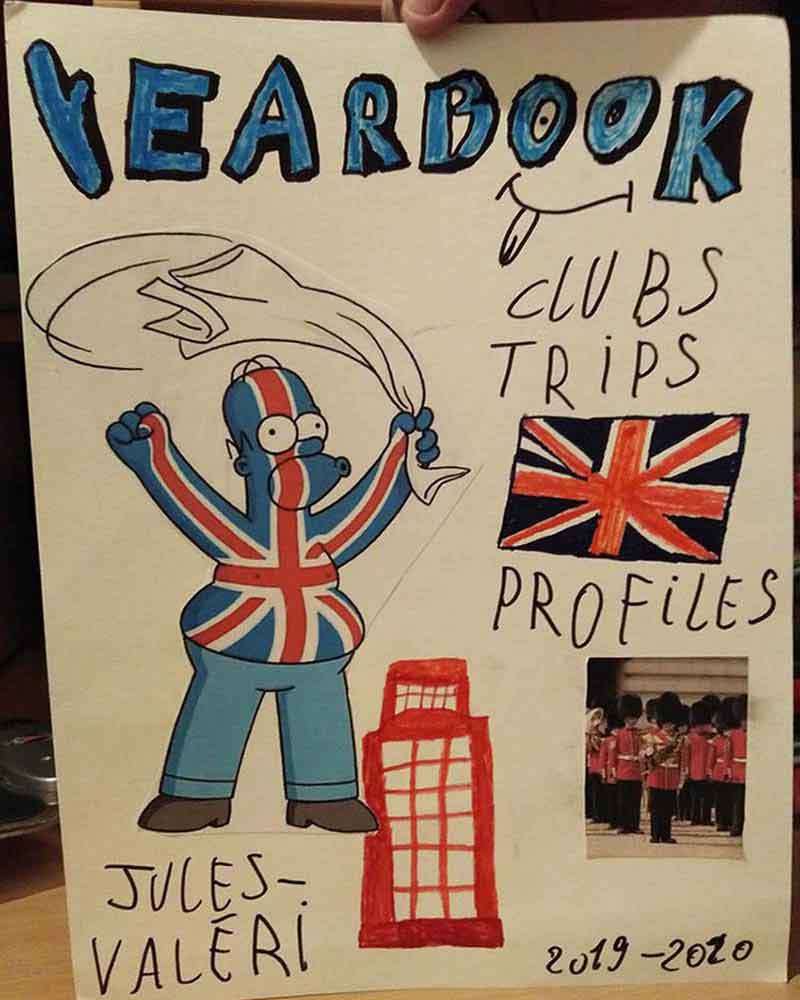 YEARBOOK
CLUBS
TRiPS
PROFiLES
JULES-
VALÉRi
2019-2020